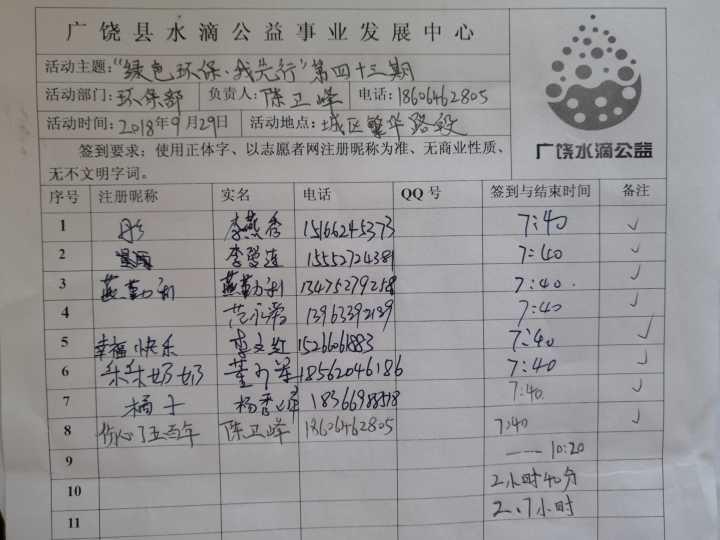 广饶县水滴公益事业发展中心
活动主题:“绿色环保·我先行”第四十三期
活动部门:环保部 负责人:陈卫峰 电话:18606462805
活动时间:2018年9月29日 活动地点:城区繁华路段
签到要求:使用正体字、以志愿者网注册昵称为准、无商业性质、
无不文明字词。
广饶水滴公益
序号 注册昵称 实名 电话 QQ号 签到与结束时间 备注
1 李燕秀 15166245373 7:40 ✓
2 李爱莲 15552724381 7:40 ✓
3 燕勤利 燕勤利 13475279258 7:40. ✓
4 范永爱 13963392139 7:40 ✓
5 幸福快乐 李文红 15266061883 7:40 ✓
6 朵朵奶奶 董 18562046186 7:40 ✓
7 橘子 杨秀 7:40. ✓
8 伤心了五百年 陈卫峰 18606462805 7:40 ✓
9 —— 10:20
10 2小时40分
11 2.7小时